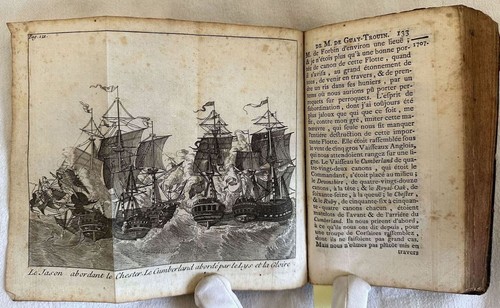 Pag. 132.
Le Jason abordant le Chester. Le Cumberland abordé par le Lys et la Gloire
DE M. DE GUAY-TROUIN. 133
M. de Forbin d'environ une lieuë ;
& je n'étois plus qu'à une bonne por-
tée de canon de cette Flotte, quand
il s'avisa, au grand étonnement de
tous, de venir en travers, & de pren-
dre un ris dans ses huniers, par un
tems où nous aurions pû porter per-
roquets sur perroquets. L'esprit de
subordination, dont j'ai toujours été
plus jaloux que qui que ce soit, me
fit, contre mon gré, imiter cette ma-
nœuvre, qui seule nous fit manquer
l'entiere destruction de cette impor-
tante Flotte. Elle étoit rassemblée sous
le vent de cinq gros Vaisseaux Anglois,
qui nous attendoient rangez sur une li-
gne. Le Vaisseau le Cumberland de qua-
tre-vingt-deux canons, qui étoit le
Commandant, s'étoit placé au milieu ;
le Devonshire, de quatre-vingt-douze
canons, à la tête ; & le Royal-Oak, de
soixante-seize, à la queuë ; le Chester,
& le Ruby, de cinquante-six à cinquan-
te-quatre canons chacun, étoient
matelots de l'avant & de l'arriére du
Cumberland. Ils nous prirent d'abord,
à ce qu'ils nous ont dit depuis, pour
une troupe de Corsaires rassemblez,
dont ils ne faisoient pas grand cas.
Mais nous n'eûmes pas plûtôt mis en
travers
1707.